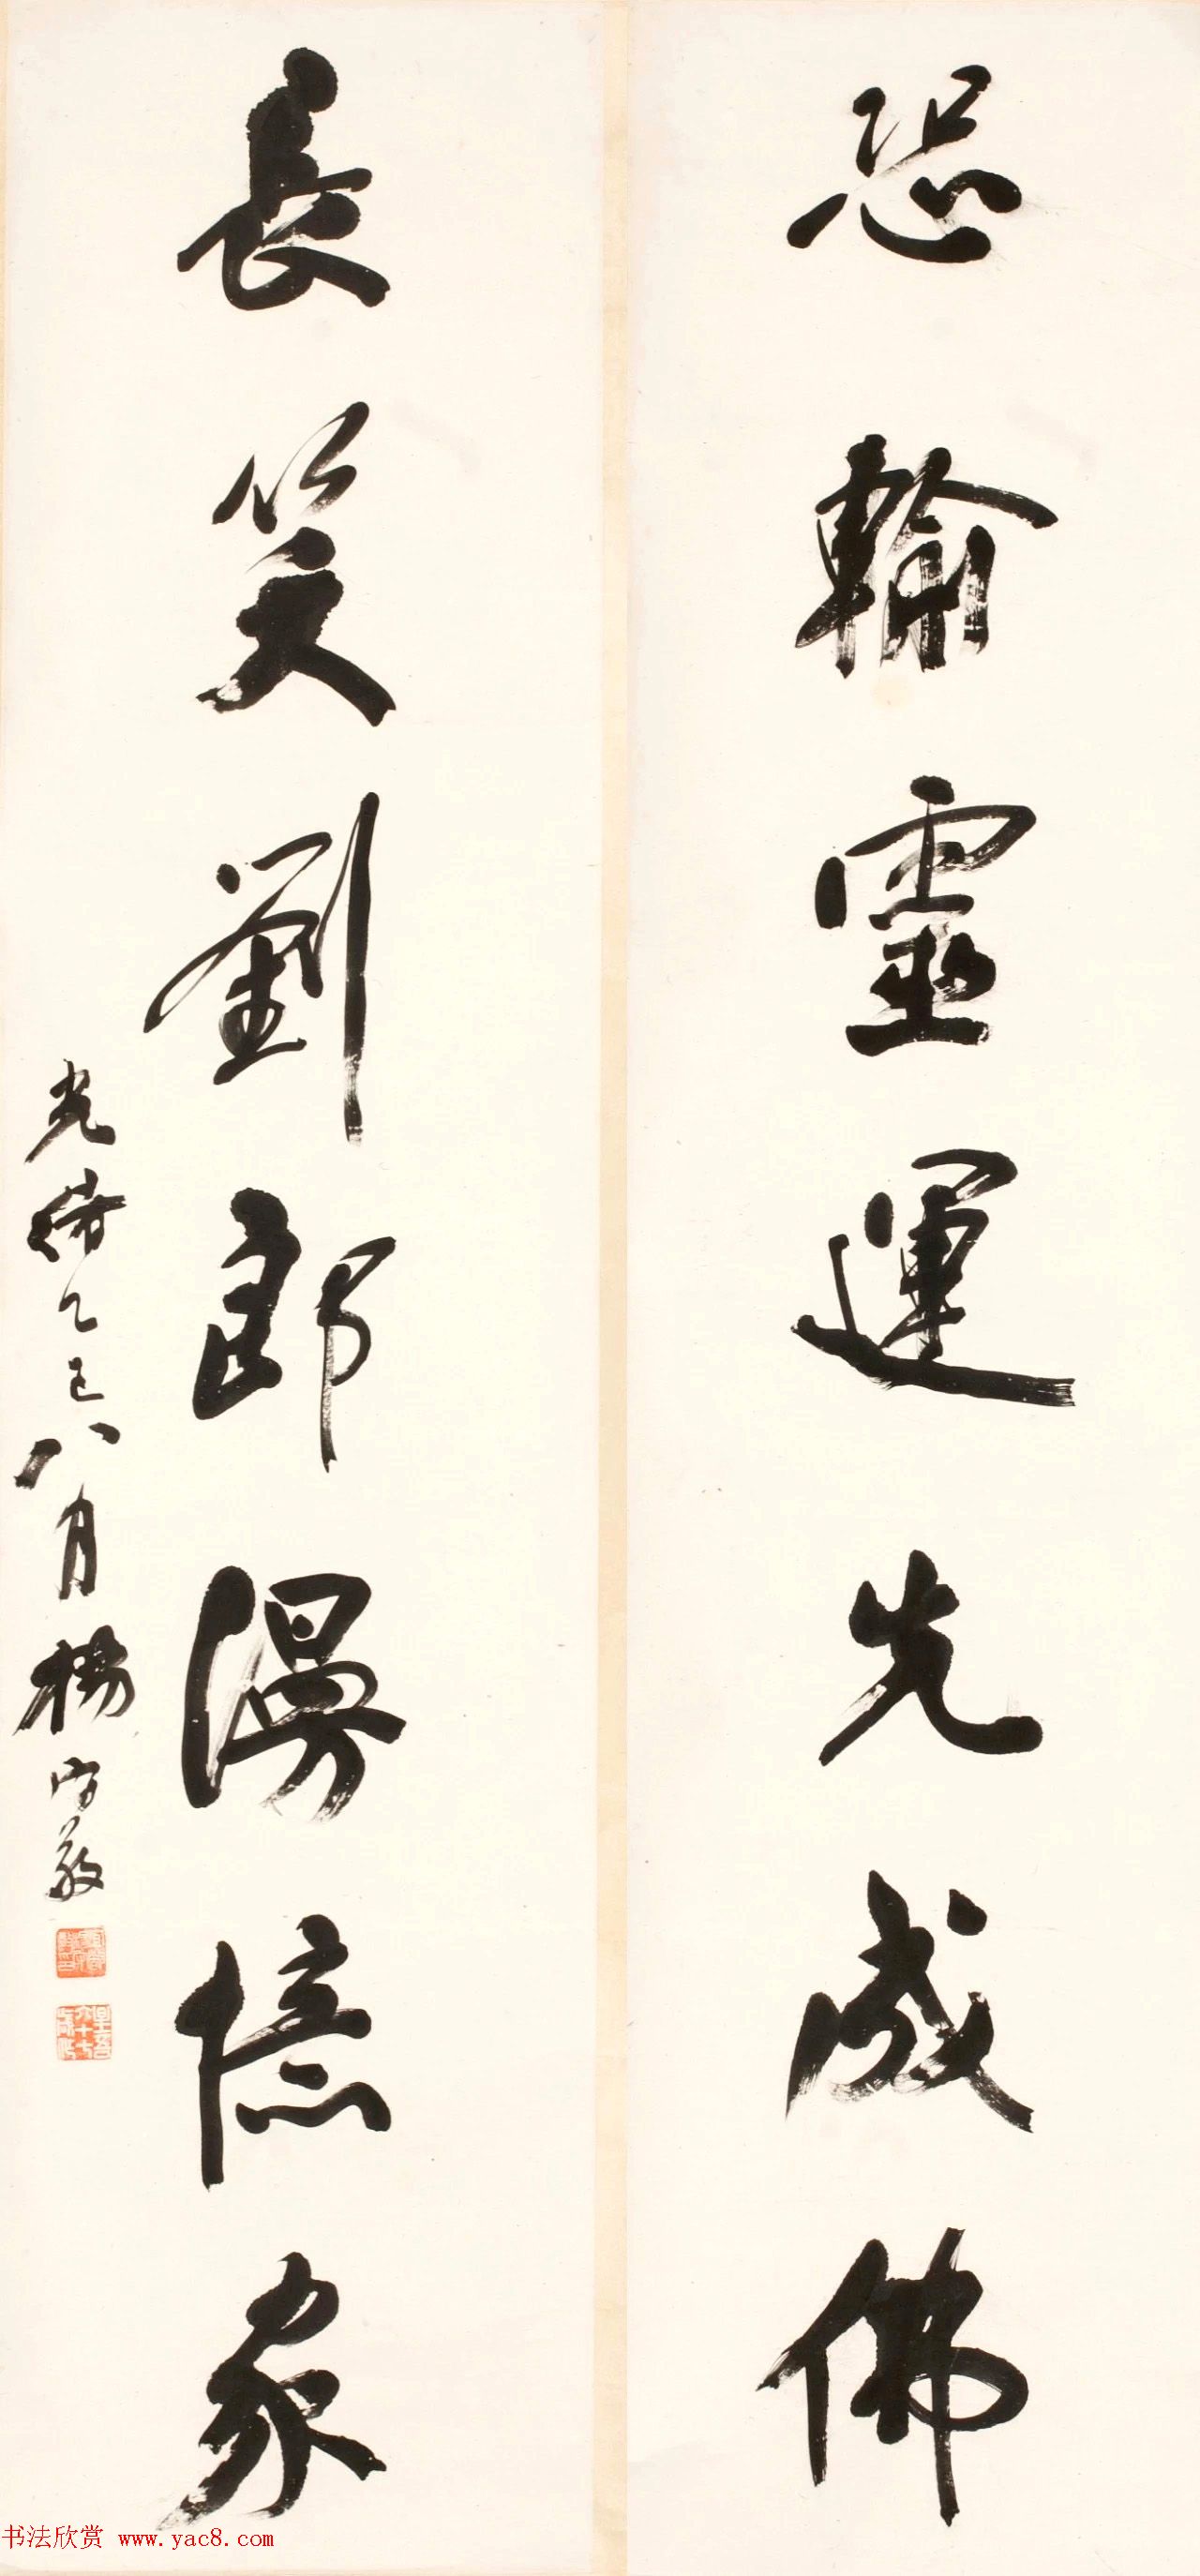 恐輸靈運先成佛
長笑劉郎漫憶家
光緒乙巳八月楊守敬
书法欣赏 www.yac8.com